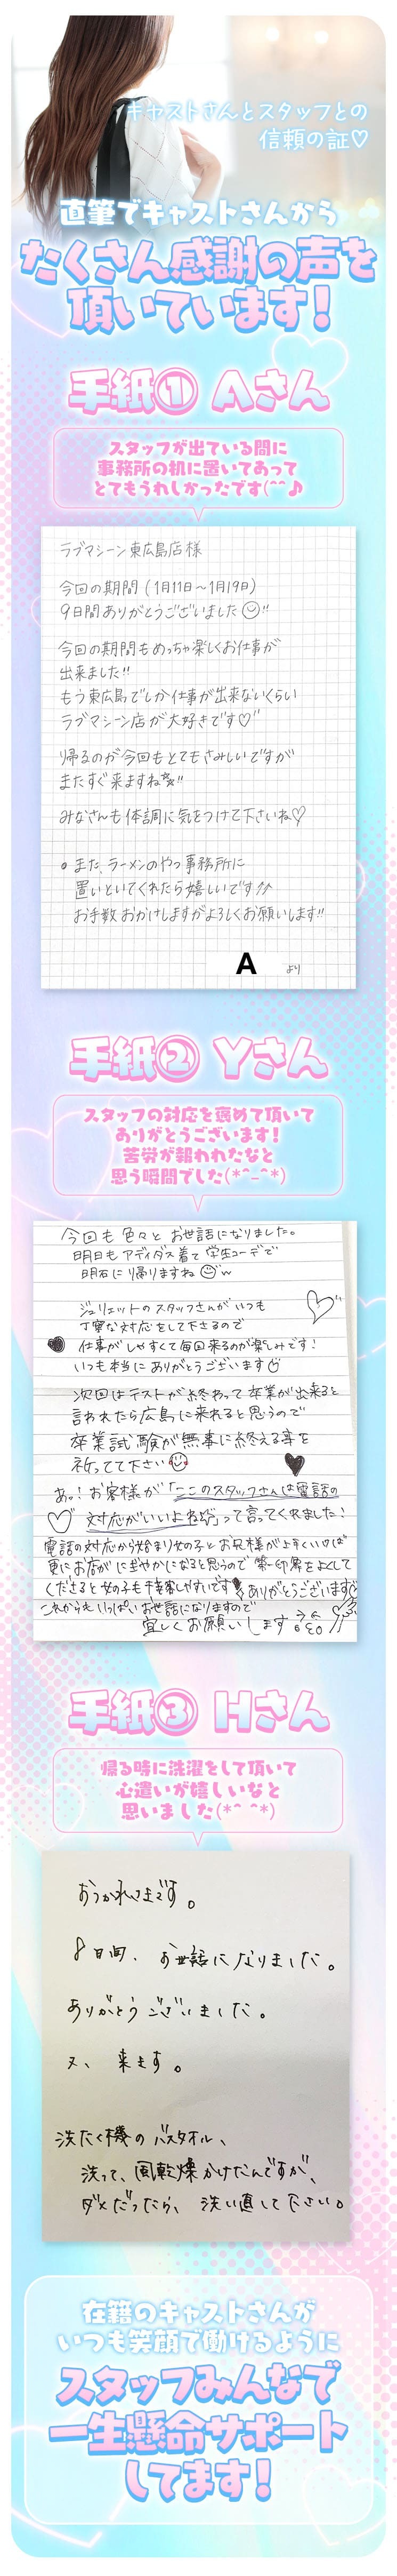 キャストさんとスタッフとの
信頼の証♡
直筆でキャストさんから
たくさん感謝の声を
頂いています！
手紙① Aさん
スタッフが出ている間に
事務所の机に置いてあって
とてもうれしかったです(^^♪
ラブマシーン東広島店様
今回の期間(1月11日〜1月19日)
9日間ありがとうございました!!
今回の期間もめっちゃ楽しくお仕事が
出来ました!!
もう東広島でしか仕事が出来ないくらい
ラブマシーン店が大好きです♡
帰るのが今回もとてもさみしいですが
またすぐ来ますね!!
みなさんも体調に気をつけて下さいね♡
また、ラーメンのやつ事務所に
置いといてくれたら嬉しいです
お手数おかけしますがよろしくお願いします!!
A より
手紙② Yさん
スタッフの対応を褒めて頂いて
ありがとうございます！
苦労が報われたなと
思う瞬間でした(*^-^*)
今回も色々とお世話になりました。
明日もアディダス着て学生コーデで
明石に帰りますね w
ジュリエットのスタッフさんがいつも
丁寧な対応をして下さるので
仕事がしやすくて毎回来るのが楽しみです!
いつも本当にありがとうございます
次回はテストが終わって卒業が出来ると
言われたら広島に来れると思うので
卒業試験が無事に終える事を
祈ってて下さい
あっ!お客様が「ここのスタッフさんは電話の
対応がいいよねぞ」って言ってくれました!
電話の対応から始まり女の子とお兄様がよすくいけば
更にお店がにぎやかになると思うので第一印象をよくして
くださると女の子も接客しやすいです ありがとうございます
これからもいっぱいお世話になりますので
宜しくお願いします
手紙③ Hさん
帰る時に洗濯をして頂いて
心遣いが嬉しいなと
思いました(*^^*)
おつかれさまです。
8日間、お世話になりました。
ありがとうございました。
又、来ます。
洗たく機のバスタオル、
洗って、風乾燥かけたんですが、
ダメだったら、洗い直して下さい。
在籍のキャストさんが
いつも笑顔で働けるように
スタッフみんなで
一生懸命サポート
してます！